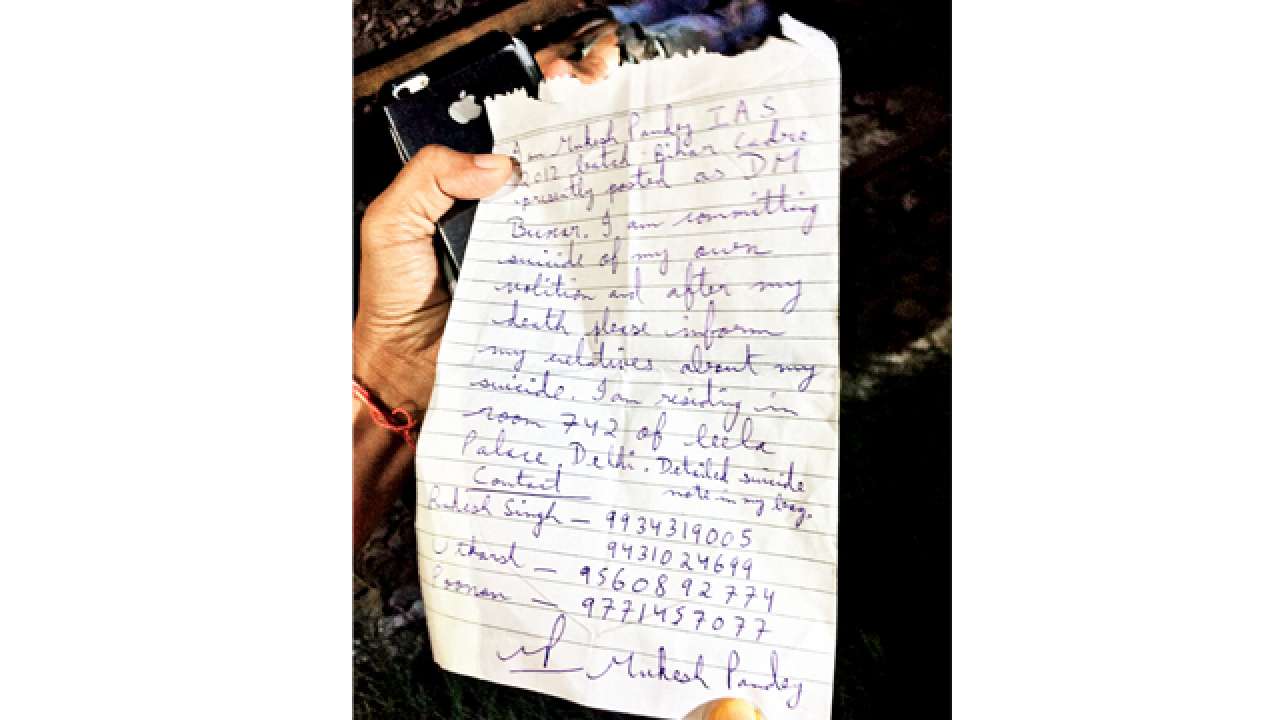 I am Mukesh Pandey IAS
2012 batch Bihar Cadre
presently posted as DM
Buxar. I am committing
suicide of my own
volition and after my
death please inform
my relatives about my
suicide. I am residing in
room 742 of leela
Palace, Delhi. Detailed suicide
note in my bag.
Contact
Rakesh Singh — 9934319005
9431024699
Utkarsh — 9560892774
Poonam — 9771457077
Mukesh Pandey